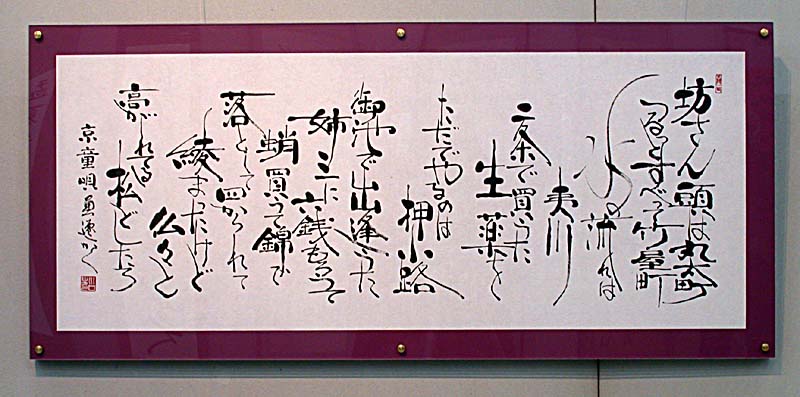 坊さん頭は丸太町
つるっとすべって竹屋町
水の流れは
夷川
二条で買うた
生薬を
ただでやるのは
押小路
御池で出逢うた
姉三に
六銭もらって
蛸買って錦で
落として四かられて
綾まったけど
仏々と
高がれてる
私どしたろ
京童唄